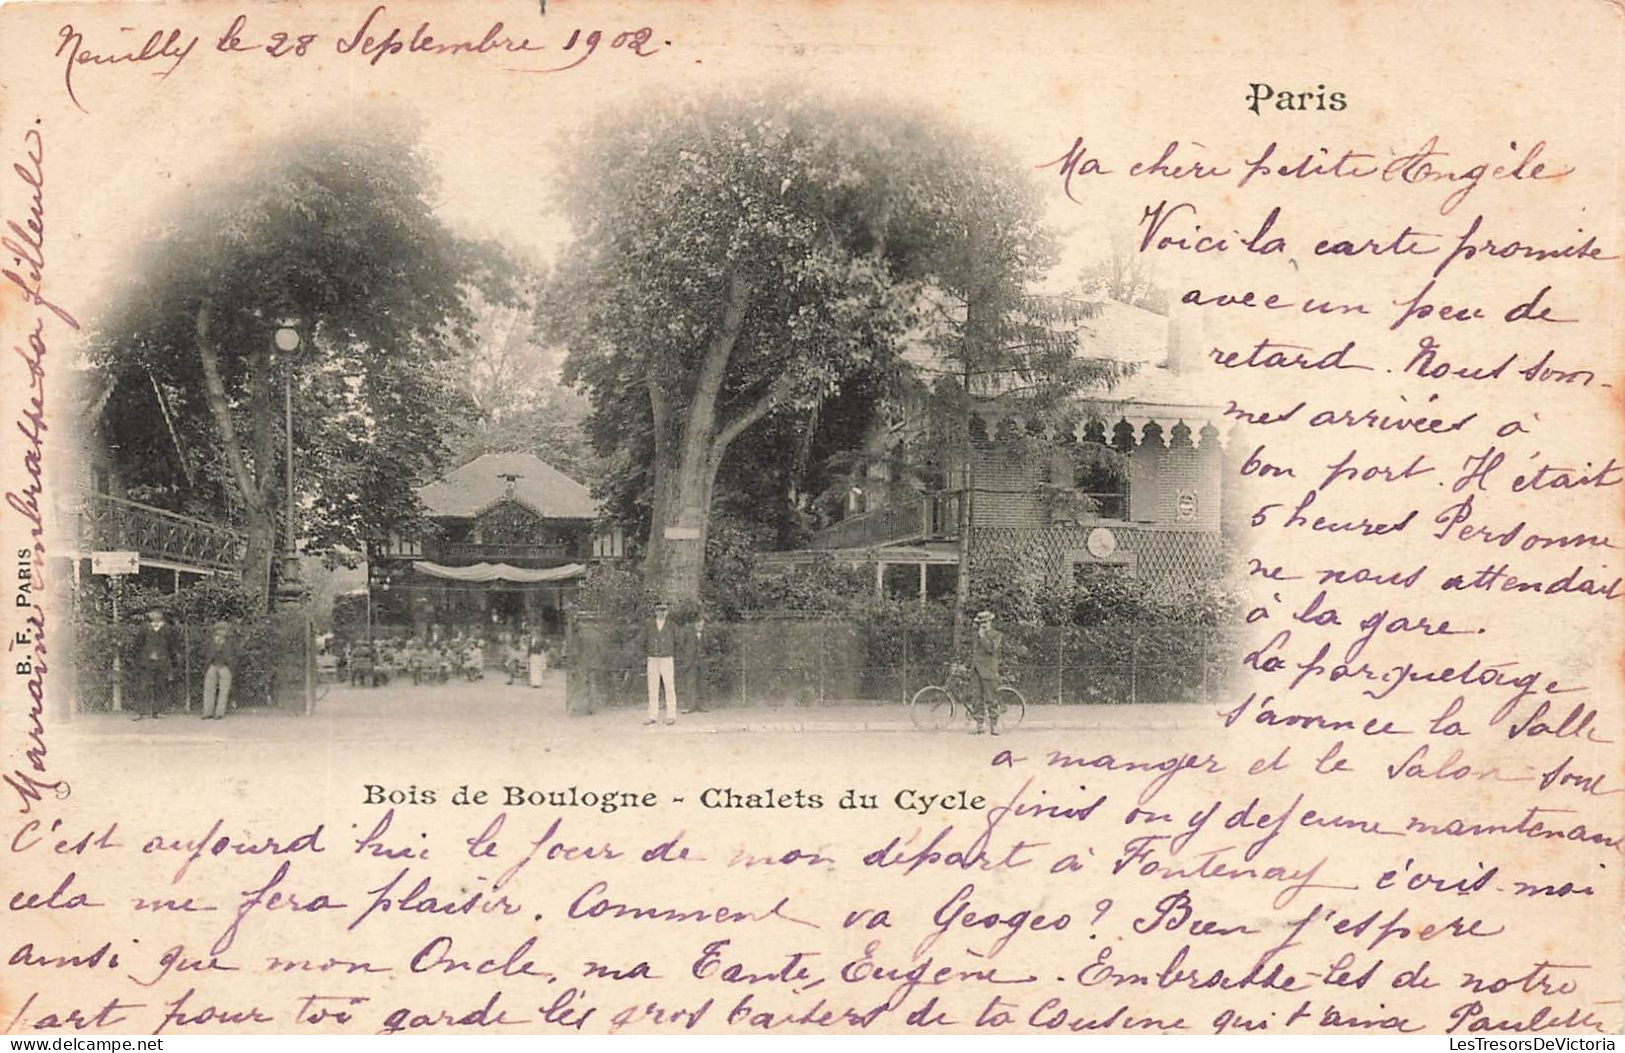 Neuilly le 28 Septembre 1902.
Paris
Ma chère petite Angèle
Voici la carte promise
avec un peu de
retard. Nous som-
mes arrivées à
bon port. Il était
5 heures Personne
ne nous attendait
à la gare.
Le parquetage
s'avance la Salle
a manger et le Salon sont
finis on y dejeune maintenant
Bois de Boulogne - Chalets du Cycle
C'est aujourd'hui le jour de mon départ à Fontenay écris-moi
cela me fera plaisir. Comment va Geogeo? Bien j'espère
ainsi que mon Oncle, ma Tante, Eugène. Embrasse-les de notre
part pour toi garde les gros baisers de ta Cousine qui t'aime Paulette
Marraine embrasse sa filleule.
B. F., PARIS
LesTresorsDeVictoria
delcampe.net